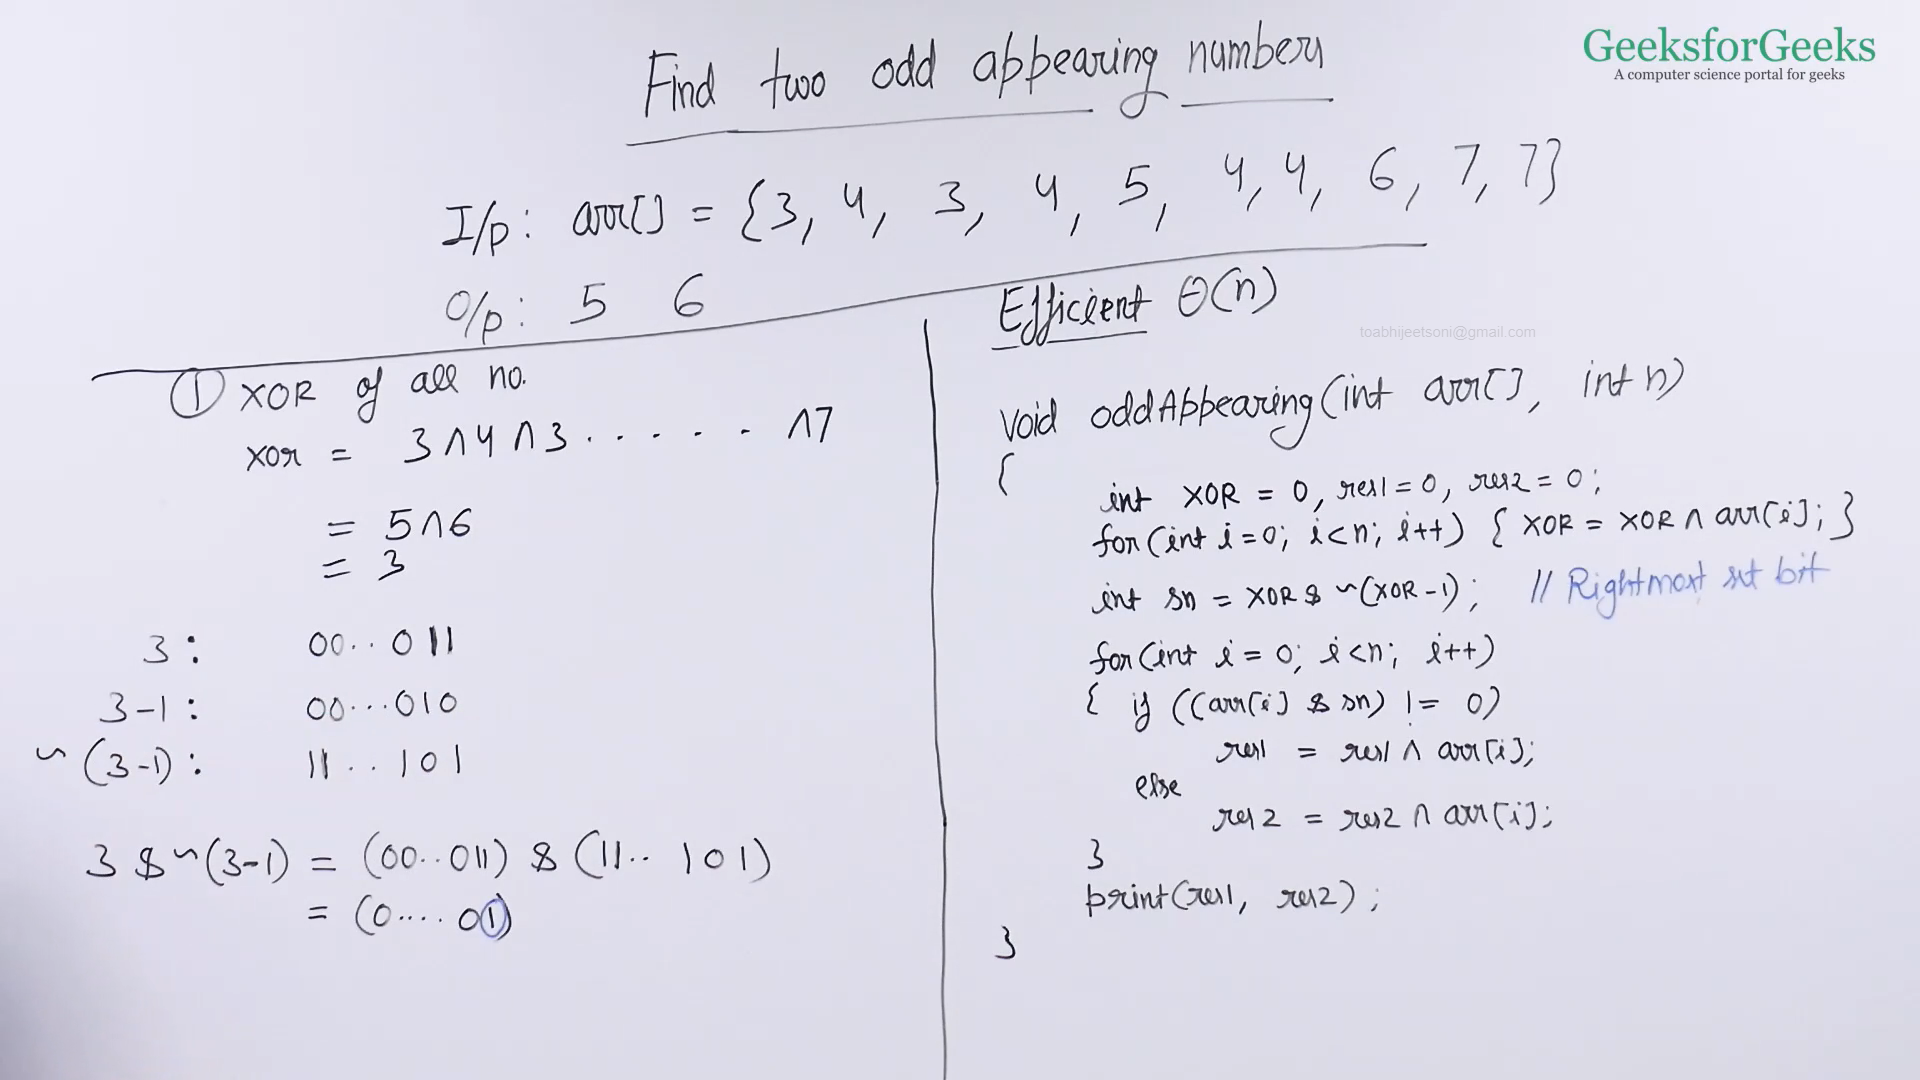 Find two odd appearing numbers
GeeksforGeeks
A computer science portal for geeks
I/p: arr[] = {3, 4, 3, 4, 5, 4, 4, 6, 7, 7}
O/p: 5 6
① XOR of all no.
xor = 3 ∧ 4 ∧ 3 . . . . . ∧7
= 5∧6
= 3
3 : 00..011
3-1 : 00...010
~(3-1) : 11..101
3 & ~(3-1) = (00..011) & (11.. 101)
= (0....01)
Efficient Θ(n)
toabhijeetsoni@gmail.com
void oddAppearing(int arr[], int n)
{
int XOR = 0, res1 = 0, res2 = 0;
for(int i=0; i<n; i++) { XOR = XOR ∧ arr[i]; }
int sn = XOR & ~(XOR-1); // Rightmost set bit
for(int i = 0; i<n; i++)
{ if ((arr[i] & sn) != 0)
res1 = res1 ∧ arr[i];
else
res2 = res2 ∧ arr[i];
}
print(res1, res2);
}